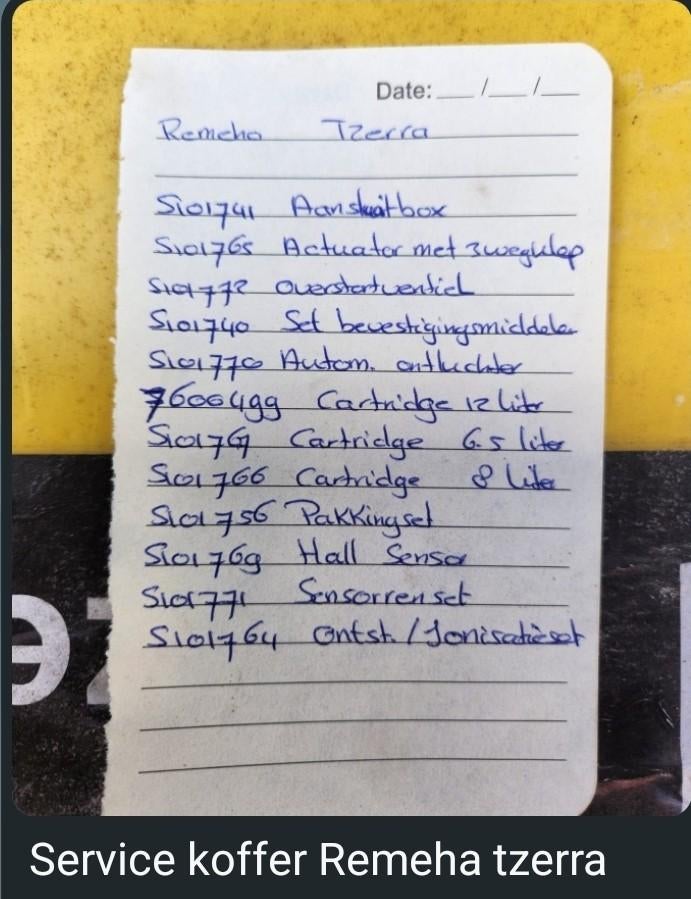 Date: __/__/__
Remeha Tzerra
S101741 Aansluitbox
S101765 Actuator met 3wegklep
S101772 Overstortventiel
S101740 Set bevestigingsmiddelen
S101770 Autom. ontluchter
7600499 Cartridge 12 liter
Cartridge 6.5 liter
S101766 Cartridge 8 liter
S101756 Pakkingset
S101769 Hall Sensor
S101771 Sensorrenset
S101764 Ontst. / Ionisatieset
Service koffer Remeha tzerra